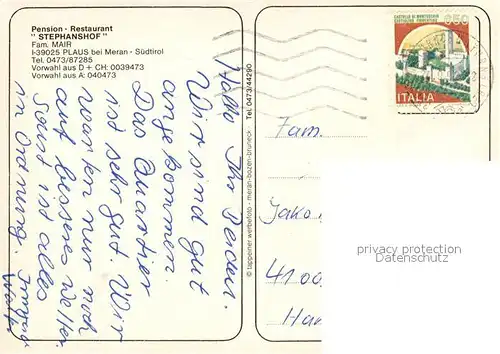 Pension - Restaurant
" STEPHANSHOF "
Fam. MAIR
I-39025 PLAUS bei Meran - Südtirol
Tel. 0473/87285
Vorwahl aus D + CH: 0039473
Vorwahl aus A: 040473
Hallo Ihr Beiden.
Wir sind gut
angekommen.
Das Quartier
ist sehr gut. Wir
warten nur noch
auf besseres Wetter.
Sonst ist alles
in Ordnung.
© tappeiner werbefoto - meran-bozen-bruneck - Tel. 0473/44290
CASTELLO DI MONTECCHIO
CASTIGLION FIORENTINO
650
ITALIA
Fam.
Jako
4100
Ha
privacy protection
Datenschutz